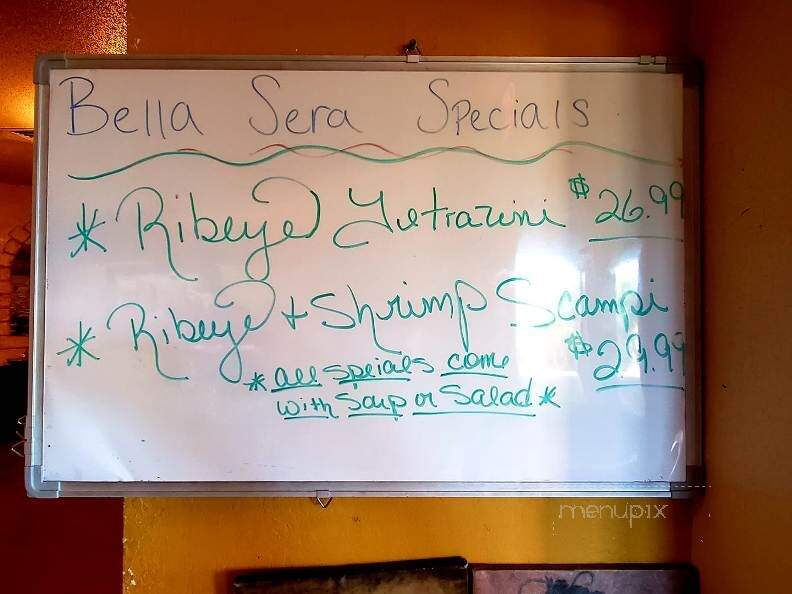 Bella Sera Specials
* Ribeye Tetrazini $26.99
* Ribeye + Shrimp Scampi
$29.99
* all Speials come
with Soup or Salad *
menupix